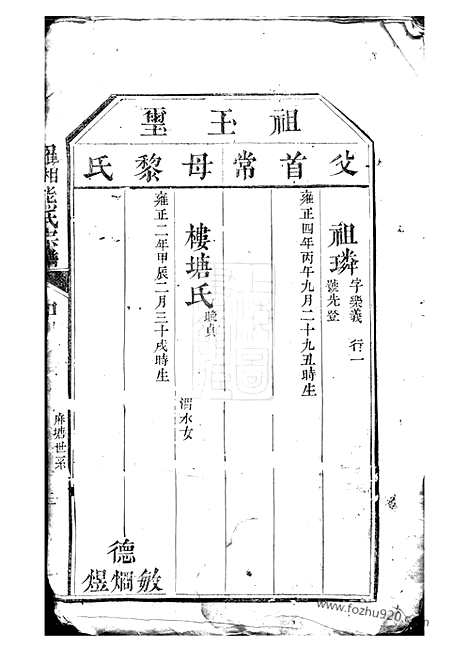 祖玉璽
父首常母黎氏
祖璘 字樂義 行一
號先登
雍正四年丙午九月二十九丑時生
樓塘氏 晚貞
渭水女
雍正二年甲辰二月三十戌時生
德
敏
烱
煜
氏宗譜
麻塘世系
www.fozhu920.com